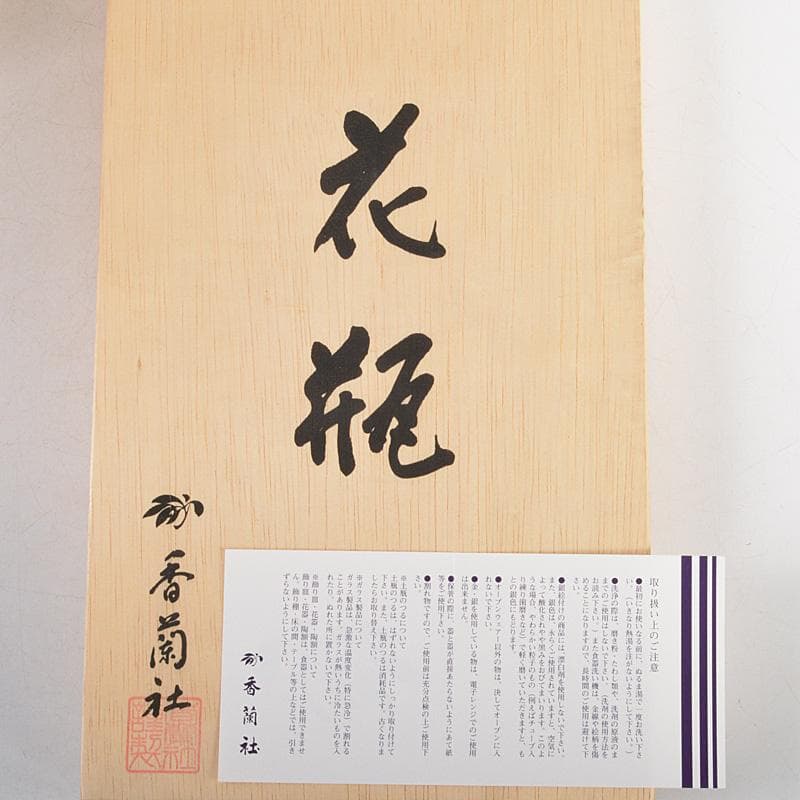 花瓶
香蘭社
取り扱い上のご注意
●最初にお使いになる前に、ぬるま湯で一度お洗い下さい。（いきなり熱湯を注がないようにして下さい。）
●洗浄の際には、磨き粉・たわし類や、洗剤の原液のままでのご使用はしないで下さい。（洗剤の使用方法をお読み下さい。）また食器洗い機は、金線や絵柄を傷めることになりますので、長時間のご使用は避けて下さい。
●銀絵付けの商品には、漂白剤を使用しないで下さい。また、銀色は、永らくご使用されていますと、空気によって酸化されやや黒みをおびてまいります。このような場合、やわらかい粒子のもの（例えばチューブ入り練り歯磨きなど）で軽く磨いていただきますと、もとの銀色にもどります。
●オーブンウェアー以外の物は、決してオーブンに入れないで下さい。
●金、銀を使用している物は、電子レンジでのご使用は出来ません。
●保管の際に、器と器が直接あたらないようにあて紙等をご使用下さい。
●割れ物ですので、ご使用前は充分点検の上ご使用下さい。
※土瓶のつるについて
土瓶のつるは、はずれないようにしっかり取り付けて下さい。また、土瓶のつるは消耗品です。古くなりましたらお取り替え下さい。
※ガラス製品について
ガラス製品は、急激な温度変化（特に急冷）で割れることがあります。ガラスが熱いうちに冷たいものを入れたり、ぬれた所に置かないで下さい。
※飾り皿・花器・陶額について
飾り皿・花器・陶額は、食器としてはご使用できません。飾り棚・床の間、テーブル等の上などでは、引きずらないようにして下さい。
香蘭社